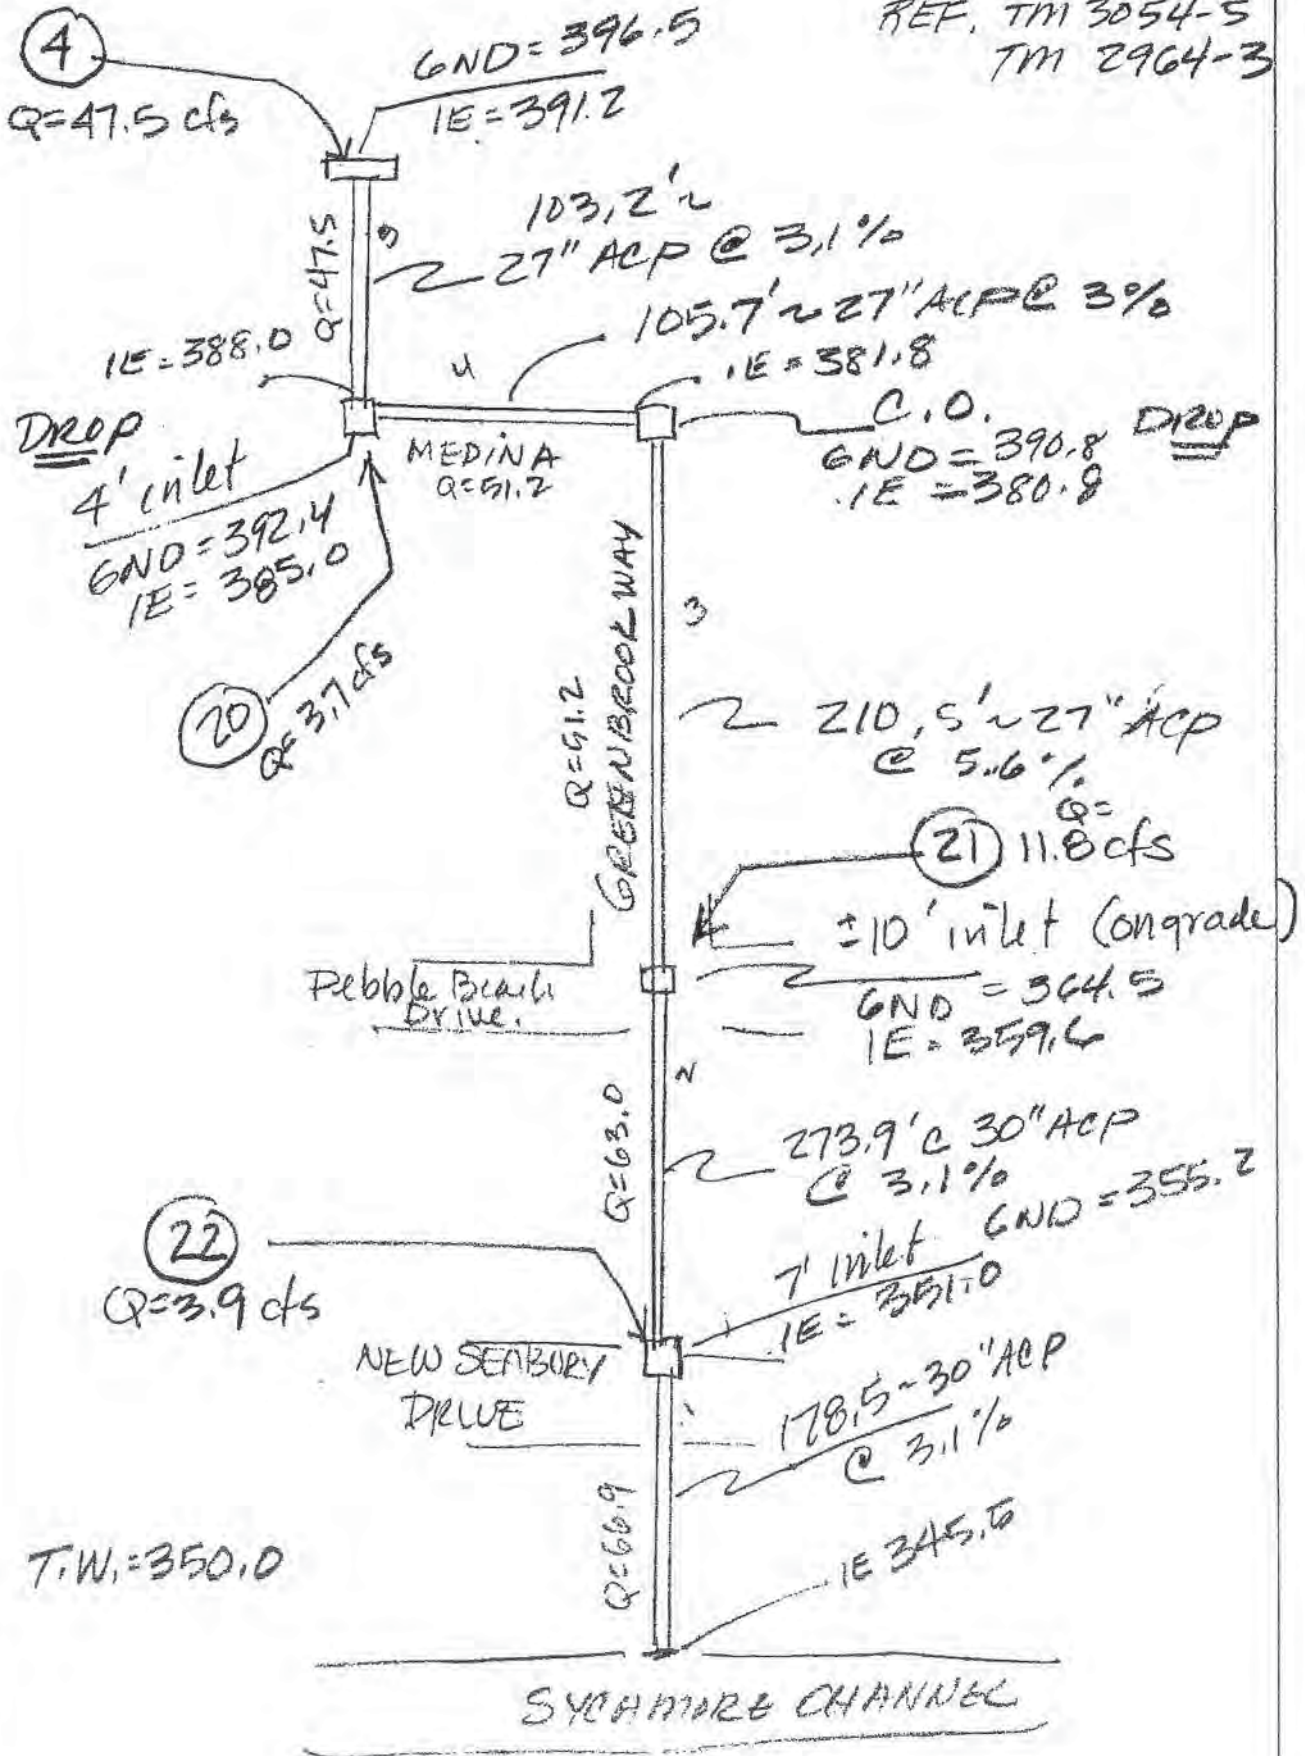 REF. TM 3054-5
TM 2964-3
4
Q=47.5 cfs
GND = 396.5
IE = 391.2
Q=47.5
5
103.2' ~
27" ACP @ 3.1%
105.7' ~ 27" ACP @ 3%
IE = 388.0
4
IE = 381.8
DROP
4' inlet
GND = 392.4
IE = 385.0
MEDINA
Q=51.2
C.O.
GND = 390.8
IE = 380.8
DROP
20
Q= 3.7 cfs
Q=51.2
GREENBROOK WAY
3
210.5' ~ 27" ACP
@ 5.6%
Q=
21 11.8 cfs
±10' inlet (ongrade)
GND = 364.5
IE = 359.6
Pebble Beach
Drive.
2
Q=63.0
273.9' c 30" ACP
@ 3.1%
22
Q=3.9 cfs
7' inlet GND = 355.2
IE = 351.0
NEW SEABURY
DRIVE
178.5 ~ 30" ACP
@ 3.1%
Q=66.9
T.W. = 350.0
IE 345.5
SYCAMORE CHANNEL